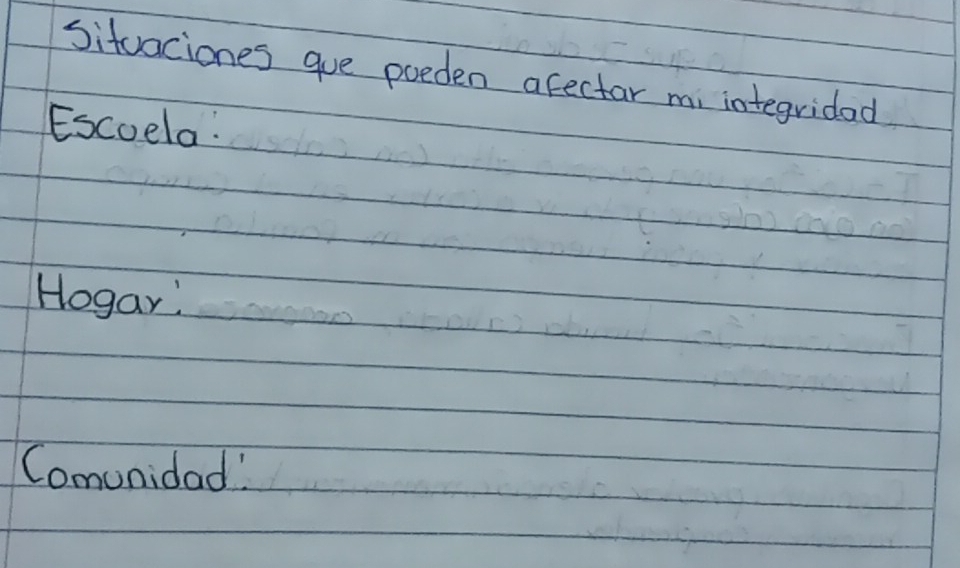 Situaciones que pueden afectar mi integridad
Escuela:
Hogar:
Comunidad: